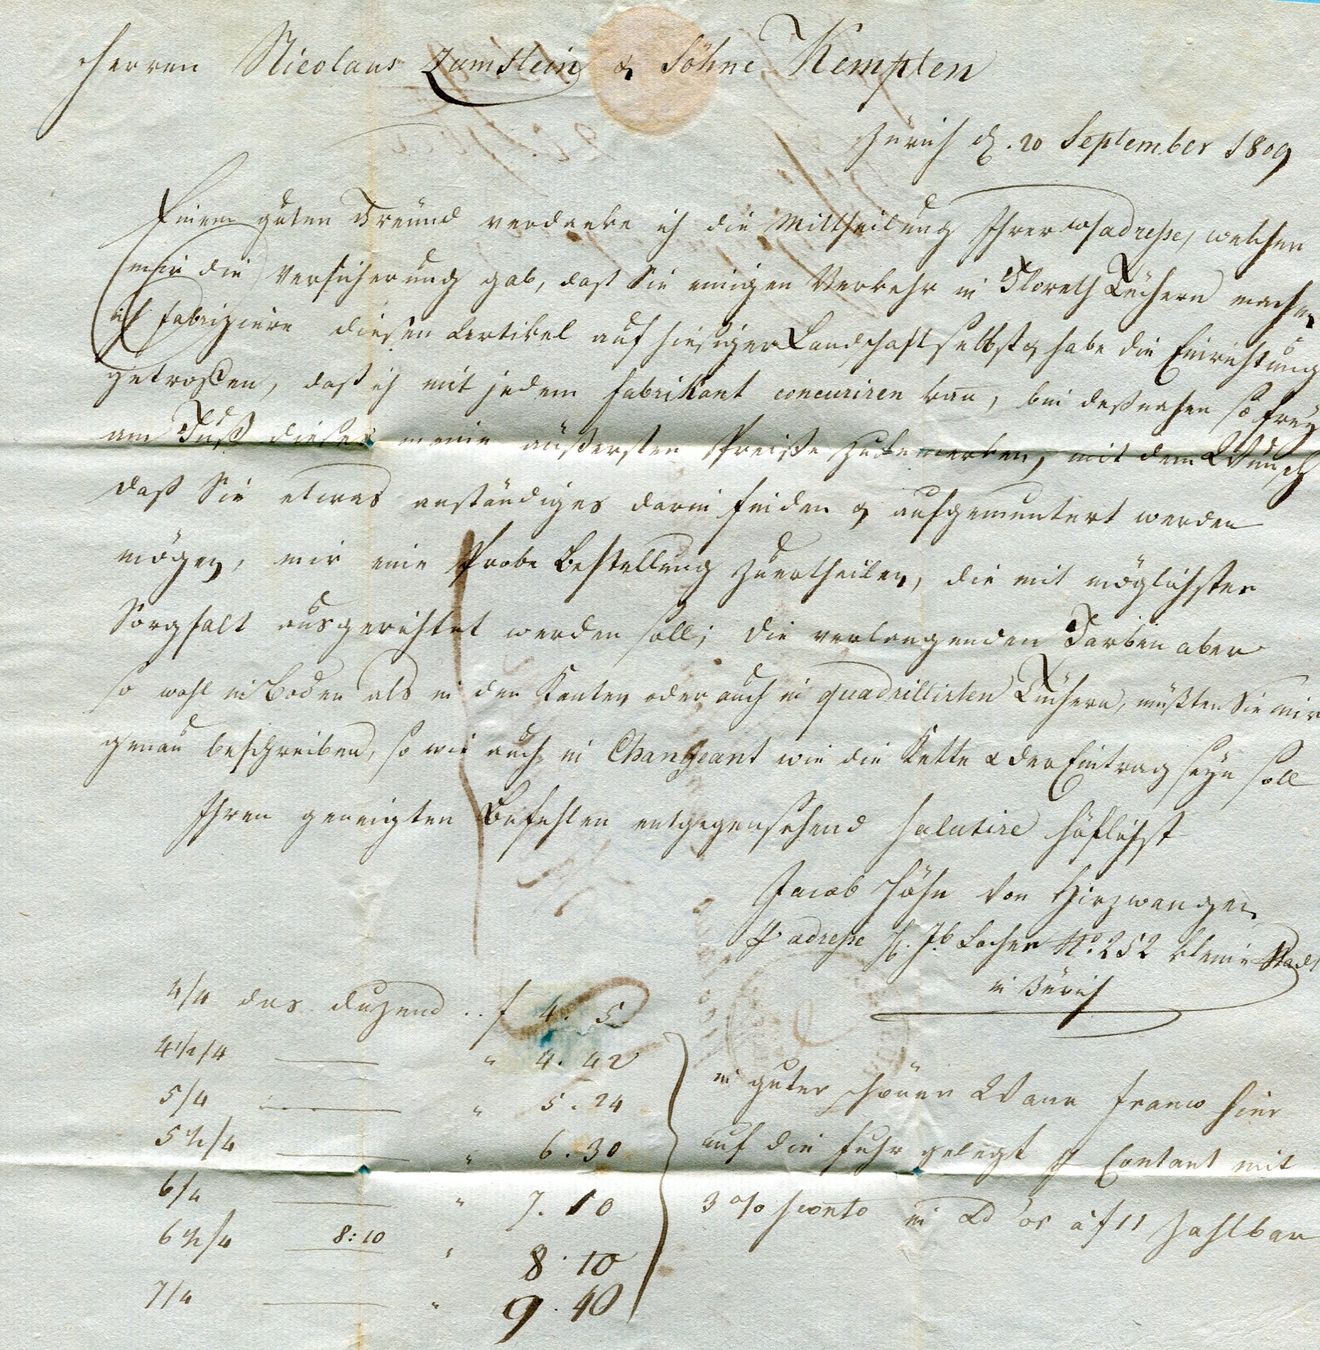 Herren Nicolaus Zumstein & Söhne Kempten
Zürich d. 20 September 1809
Einem guten Freund verdanke ich die Mittheilung Ihrer adresse, welcher
mir die Versicherung gab, daß Sie einigen Verkehr in Floreth Tüchern machen
ich fabriziere diesen Artikel auf hiesiger Landschaft selbst & habe die Einrichtung
getroffen, daß ich mit jedem Fabrikant concuriren kan, bin deßnahen so frey
am Fuß dieses meine äußersten Preiße zubemerken, mit dem Wunsch
daß Sie etwas anständiges darin finden & aufgemuntert werden
mögen, mir eine Probe Bestellung zuertheilen, die mit möglichster
Sorgfalt ausgerichtet werden soll; die verlangenden Farben aber
so wohl in Boden als in den Kanten oder auch in quadrillirten Tüchern, müßten Sie mir
genau beschreiben, so wie auch in Changeant wie die Kette & der Eintrag seyn soll
Ihren geneigten Befehlen entgegensehend salutire höflichst
Jacob Höhn von Hirzwangen
adresse H. Jb Locher No. 252 kleine Stadt
in Zürich
4/4 das duzend .. f 4. 5
4 1/2/4 — " 4. 42
5/4 — " 5. 24
5 1/2/4 — " 6. 30
6/4 — " 7. 10
6 1/2/4 8:10 " 8. 10
7/4 — " 9. 40
in guter schöner Waar franco hier
auf die fuhr gelegt Contant mit
3 % sconto in Ld'or à f 11 zahlbar